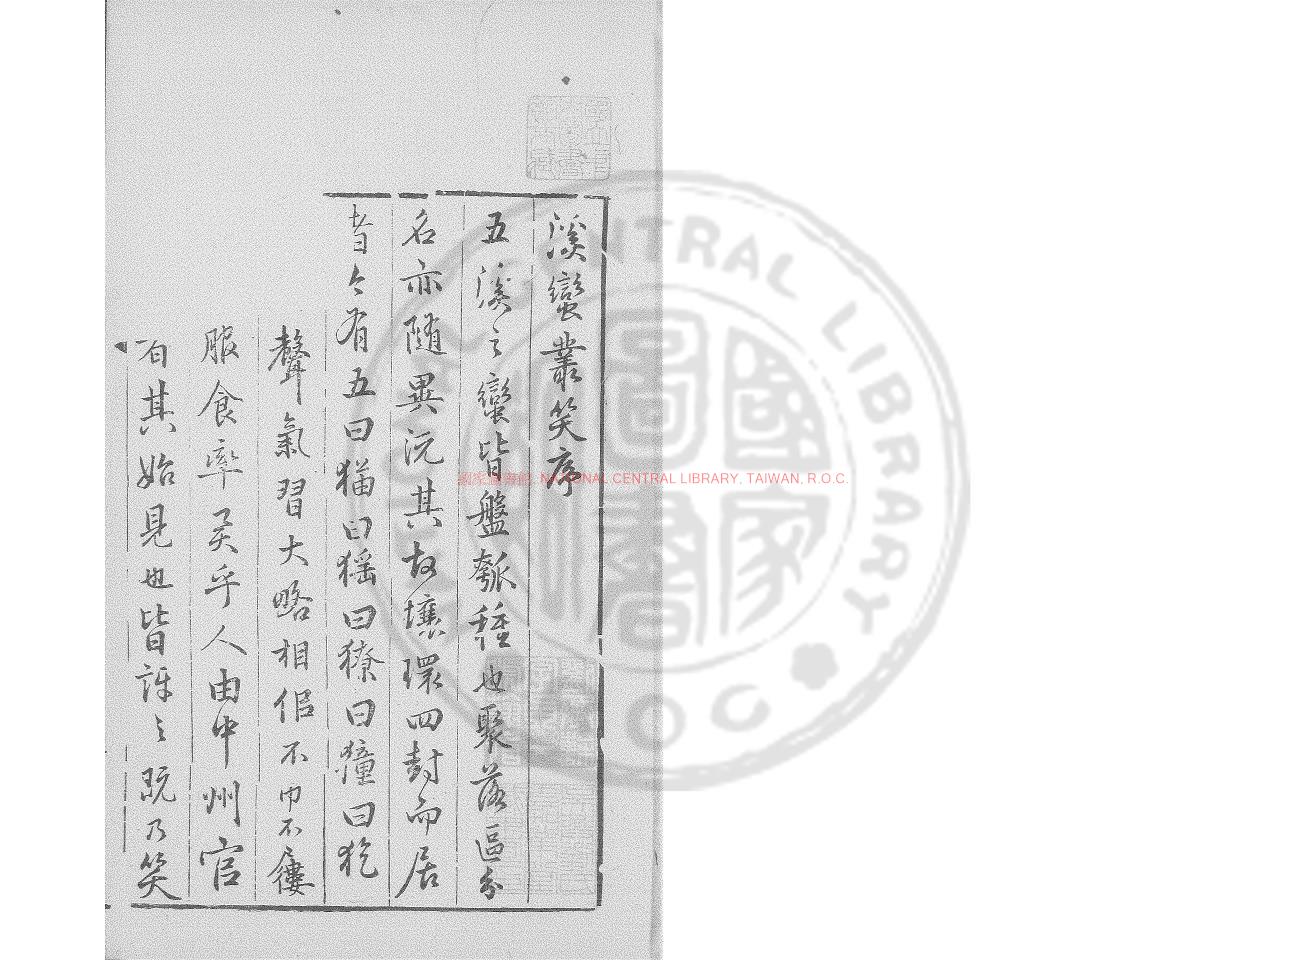 溪蠻叢笑序
五溪之蠻皆盤瓠種也聚落區分
名亦随異沅其故壤環四封而居
者今有五曰猫曰猺曰獠曰獞曰犵
聲氣習大略相佀不巾不屨
服食率異乎人由中州官
其始見也皆訝之既乃笑
國家圖書館 NATIONAL CENTRAL LIBRARY, TAIWAN, R.O.C.
NATIONAL CENTRAL LIBRARY
R.O.C
國家圖書